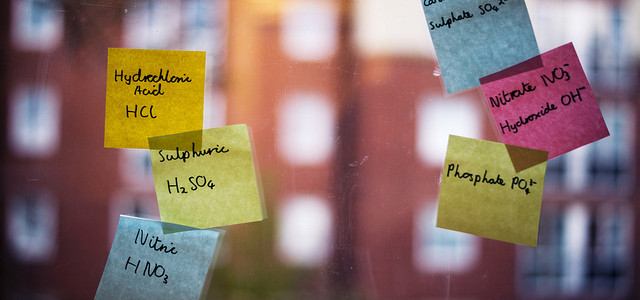 Hydrochloric
Acid
HCl
Sulphuric
H₂SO₄
Nitric
HNO₃
Sulphate SO₄²⁻
Nitrate NO₃⁻
Hydroxide OH⁻
Phosphate PO₄³⁻